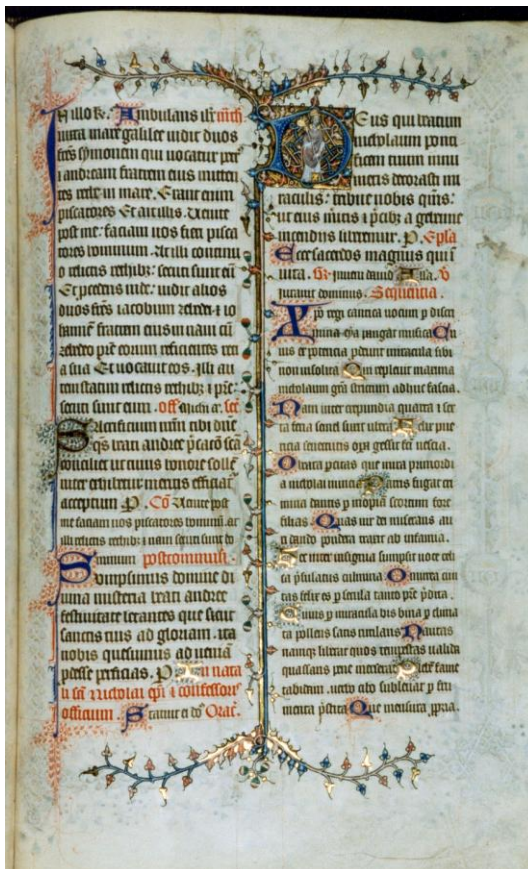 In illo t̄. Ambulans ih̄c
iuxta mare galilee uidit duos
fr̄es symonem qui uocatur petr̄
⁊ andream fratrem eius mitten
tes rethe in mare. Erant enim
piscatores Et ait illis. Uenite
post me: faciam uos fieri pisca
tores hominum. At illi continuo
relictis rethibꝫ: secuti sunt eū
Et ꝓcedens inde: uidit alios
duos fr̄es iacobum zebedei ⁊ io
hannē fratrem eius in naui cū
zebedeo pr̄e eorum reficientes reti
a sua Et uocauit eos. illi au
tem statim relictis rethibꝫ ⁊ pr̄e:
secuti sunt eum. off
Sacrificium nr̄m tibi dn̄e
q̄s beati andree p̄catō sc̄ā
conciliet ut cuius honore sollē
niter exhibetur meritis efficiat᷑
acceptum P. Cō Uenite post
me faciam uos piscatores hominū. at
illi relictis rethibꝫ ⁊ naui secuti sunt do
minum postcommunio.
Sumpsimus domine di
uina misteria beati andree
festiuitate letantes que sicut
sanctis tuis ad gloriam. ita
nobis quesumus ad ueniā
ꝓdesse perficias. P In nata
li sc̄i Nicolai ep̄i ⁊ confessor᷒
officium Statuit ei dn̄s Orat̄.
Deus qui beatum
nicholaum ponti
ficem tuum innu
meris decorasti mi
raculis: tribue nobis q̄ms:
ut eius m̄itis ⁊ p̄cibꝫ a gehenne
incendiis liberemur. P. Ep̄la
Ecce sacerdos magnus qui ī
uita. Inueni dauid Alla. V
Iurauit dominus. Sequencia.
Xp̄o regi cantica uocum ꝑ discri
mina pangat musica Cu
ius et potencia pr̄bent miracula sibi
non insolita Qui repleuit maxima
nicholaum gr̄a strictum adhuc fascia.
Nam inter crepundia quarta ⁊ sex
ta feria semel sugit ubera
ricia senectutis opa gessit fit nescia.
Orbata parens que iuuit primordi
a nicholai munia Patris fugat cri
mina dantis ꝑ inopia scortum fore
filias Quas uir dei miserans au
ri dando pondera traxit ab infamia.
Hec inter insignia sumpsit uoce celi
ca p̄sulatus culmina O mirrea ciui
tas felix es ꝑ secula tanto pr̄e p̄dita.
Cuius ꝑ miracula
ta pollens sans Nautas
namqꝫ liberat quos tempestas ualida
quassans pene merserat Plebē fame
tabidam. uecto cito subleuat ꝑ fru
menta Que mensura ꝓpria.